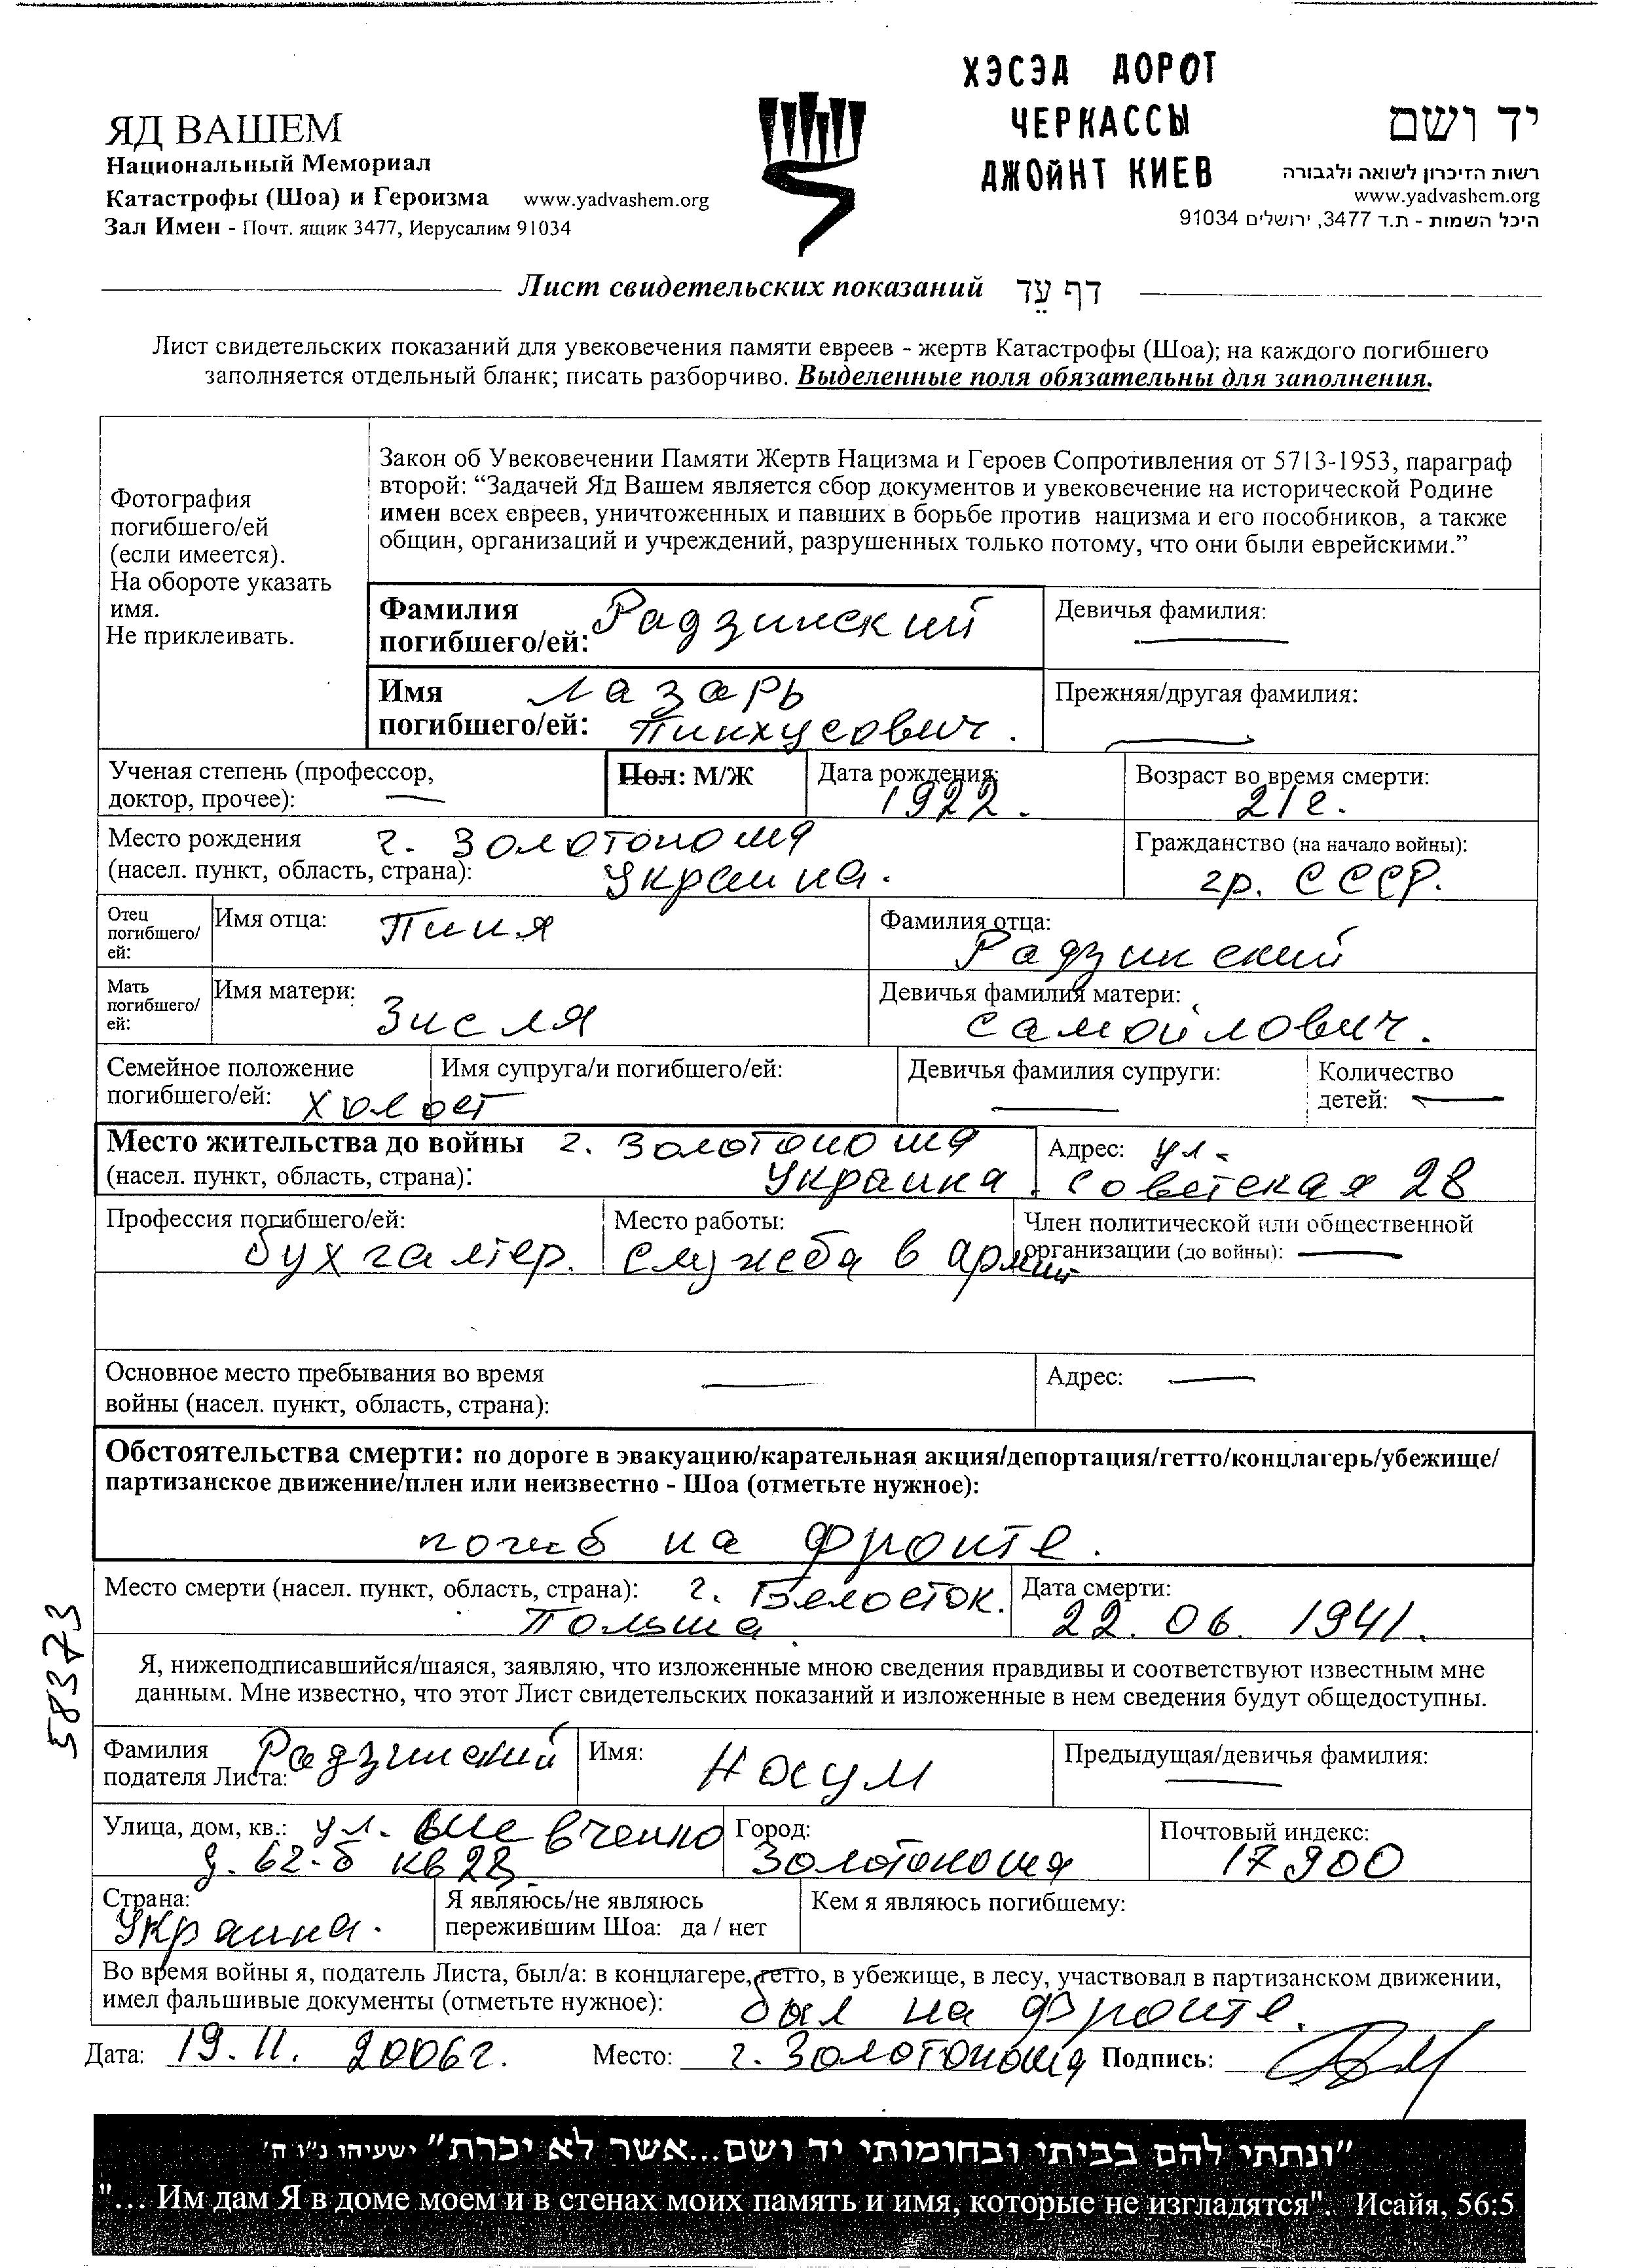 ХЭСЭД ДОРОТ
ЧЕРКАССЫ
ДЖОЙНТ КИЕВ
ЯД ВАШЕМ
Национальный Мемориал
Катастрофы (Шоа) и Героизма www.yadvashem.org
Зал Имен - Почт. ящик 3477, Иерусалим 91034
יד ושם
רשות הזיכרון לשואה ולגבורה
www.yadvashem.org
היכל השמות - ת.ד 3477, ירושלים 91034
Лист свидетельских показаний דף עֵד
Лист свидетельских показаний для увековечения памяти евреев - жертв Катастрофы (Шоа); на каждого погибшего
заполняется отдельный бланк; писать разборчиво. Выделенные поля обязательны для заполнения.
Фотография
погибшего/ей
(если имеется).
На обороте указать
имя.
Не приклеивать.
Закон об Увековечении Памяти Жертв Нацизма и Героев Сопротивления от 5713-1953, параграф
второй: “Задачей Яд Вашем является сбор документов и увековечение на исторической Родине
имен всех евреев, уничтоженных и павших в борьбе против нацизма и его пособников, а также
общин, организаций и учреждений, разрушенных только потому, что они были еврейскими.”
Фамилия
погибшего/ей: Радзинский
Девичья фамилия:
Имя Лазарь
погибшего/ей: Пинхусович.
Прежняя/другая фамилия:
Ученая степень (профессор,
доктор, прочее):
Пол: М/Ж
Дата рождения:
1922.
Возраст во время смерти:
21г.
Место рождения г. Золотоноша
(насел. пункт, область, страна): Украина.
Гражданство (на начало войны):
гр. СССР.
Отец
погибшего/
ей:
Имя отца: Пиня
Фамилия отца:
Радзинский
Мать
погибшего/
ей:
Имя матери:
Зисля
Девичья фамилия матери:
Самойлович.
Семейное положение
погибшего/ей: холост
Имя супруга/и погибшего/ей:
Девичья фамилия супруги:
Количество
детей:
Место жительства до войны г. Золотоноша
(насел. пункт, область, страна): Украина.
Адрес: ул.
Советская 28
Профессия погибшего/ей:
бухгалтер.
Место работы:
служба в армии
Член политической или общественной
организации (до войны):
Основное место пребывания во время
войны (насел. пункт, область, страна):
Адрес:
Обстоятельства смерти: по дороге в эвакуацию/карательная акция/депортация/гетто/концлагерь/убежище/
партизанское движение/плен или неизвестно - Шоа (отметьте нужное):
погиб на фронте.
Место смерти (насел. пункт, область, страна): г. Белосток.
Польша
Дата смерти:
22. 06. 1941.
58373
Я, нижеподписавшийся/шаяся, заявляю, что изложенные мною сведения правдивы и соответствуют известным мне
данным. Мне известно, что этот Лист свидетельских показаний и изложенные в нем сведения будут общедоступны.
Фамилия
подателя Листа: Радзинский
Имя: Носум
Предыдущая/девичья фамилия:
Улица, дом, кв.: ул. Шевченко
д. 62-б кв 28.
Город:
Золотоноша
Почтовый индекс:
17900
Страна:
Украина.
Я являюсь/не являюсь
пережившим Шоа: да / нет
Кем я являюсь погибшему:
Во время войны я, податель Листа, был/а: в концлагере, гетто, в убежище, в лесу, участвовал в партизанском движении,
имел фальшивые документы (отметьте нужное): был на фронте.
Дата: 19. 11. 2006г. Место: г. Золотоноша Подпись:
"ונתתי להם בביתי ובחומותי יד ושם...אשר לא יכרת" ישעיהו נ"ו ה'
"... Им дам Я в доме моем и в стенах моих память и имя, которые не изгладятся". Исайя, 56:5